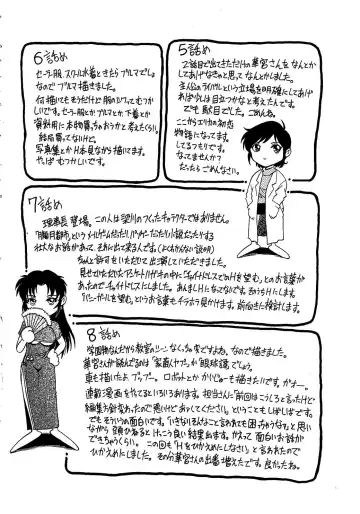 5話め
2話目で出てきただけの華宮さんをなんとか
してあげなきゃなと思ってなんとかしました。
主人公のライバルという立場を明確にしてあげ
れば今いよ目立つかなと考えたんです。
でも駄目でした。ごめんね。
ここからエリカの初恋
物語になってます。
してるつもりです。
なってませんか?
だったらごめんなさい。
6話め
セーラー服、スクール水着ときたらブルマでしょ
なのでブルマ描きました。
何描いてもそうだけど服のシワってむつか
しいです。セーラー服とかブルマとか下着とか
資料用に本物買っちゃおうかと考えたくらい。
結局買ってないけど。
写真集とかH本見ながら描いてます。
やっぱむつかしいです。
7話め
理事長登場。この人は望月のつくったキャラクターではありません。
というお話があって、それに出て来る人です。(よくわかんない説明)
ちゃんと許可をいただいて出演していただきました。
見せていただいたアンケートハガキの中に「チャイナドレスでのHを望む」とのお言葉が
あったのでチャイナドレスにしました。あんましHになってないです。そのうちHにします。
「バニーガールを望む」というお言葉もチラホラ見かけます。前向きに検討します。
8話め
学園物なんだから教室のシーンなくっちゃ栄ですよね。なので描きました。
車も描いたよ ブッブー。ロボットとか かいじゅーも描きたいです、がおー。
連載漫画をやってるといろいろあります。担当さんに「前回はこうしろと言ったけど
編集方針変わったので悪いけどあーしてください。」ということもしばしばです。
でもそういうの面白いです。「いきなりそんなこと言われても困っちゃうなー。」と思い
ながら頭ひねるとけっこう良い結果出ます。かえって面白いお話が
できちゃうくらい。この回も「Hをひかえめにしなさい」と言われたので
ひかえめにしました。その分華宮さんの出番増えたです。良かったね。